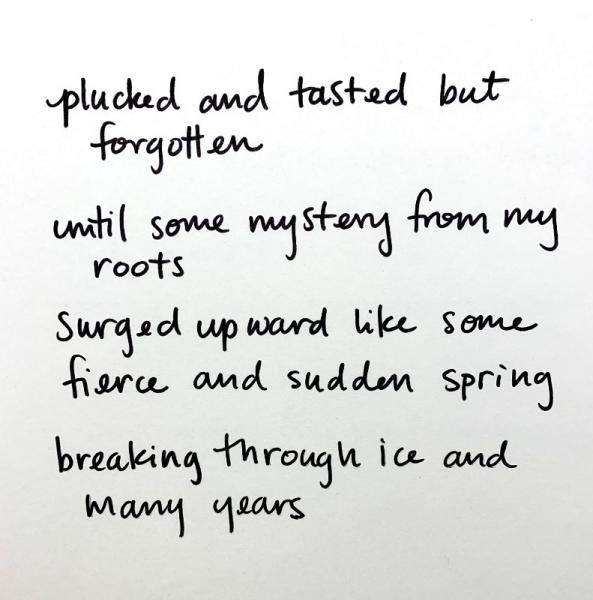 plucked and tasted but
forgotten
until some mystery from my
roots
surged upward like some
fierce and sudden spring
breaking through ice and
many years